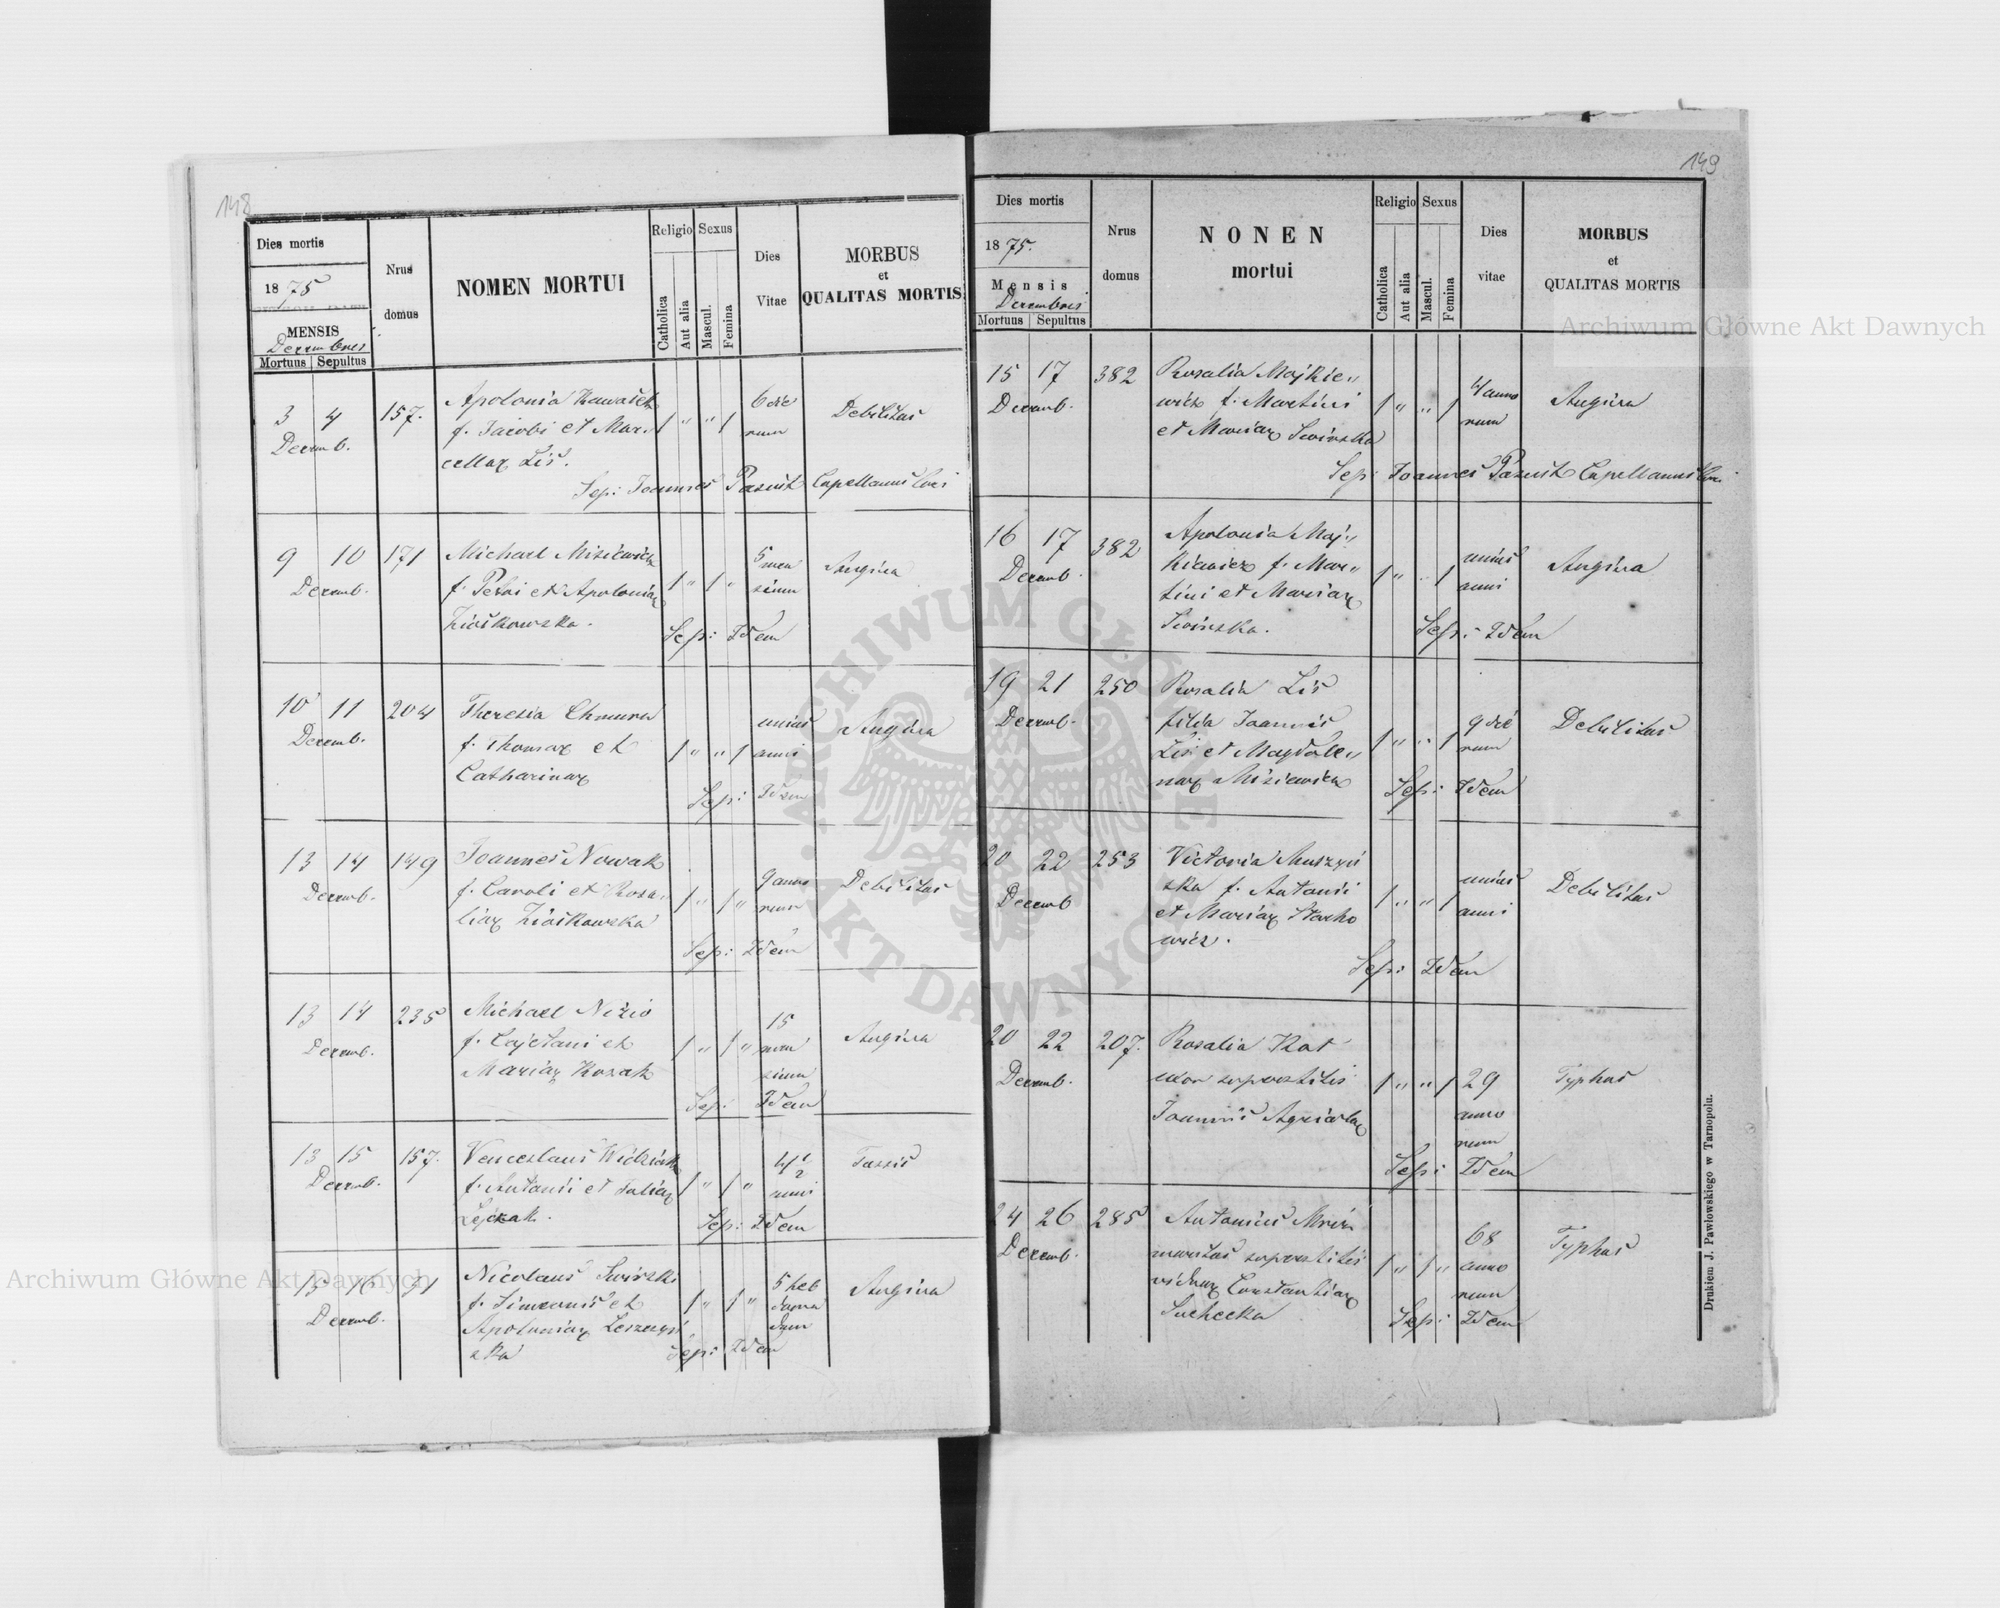 148
Dies mortis
1875
MENSIS
Decembris
Mortuus Sepultus
Nrus
domus
NOMEN MORTUI
Religio
Catholica
Aut alia
Sexus
Mascul.
Femina
Dies
Vitae
MORBUS
et
QUALITAS MORTIS
3 4 157.
Decemb.
Apolonia Kawałek
f. Jacobi et Mar„
cellae Liś.
1 „ „ 1
6 die
rum
Debilitas
Sep: Joannes Paszut Capellanus
9 10 171
Decemb.
Michael Misiewicz
f. Petri et Apoloniae
Ziółkowska.
1 „ 1 „
5 men
sium
Angina
Sep: Idem
10 11 204
Decemb.
Theresia Chmura
f. Thomae et
Catharinae
1 „ „ 1
unius
anni
Angina
Sep: Idem
13 14 149
Decemb.
Joannes Nowak
f. Caroli et Rosa„
liae Ziółkowska
1 „ 1 „
9 anno
rum
Debilitas
Sep: Idem
13 14 235
Decemb.
Michael Nizio
f. Cajetani et
Mariae Kozak
1 „ 1 „
15
men
sium
Angina
Sep: Idem
13 15 157.
Decemb.
Venceslaus
f. Antonii et Juliae
1 „ 1 „
4 1/2
anni
Tussis
Sep: Idem
15 16 31
Decemb.
Nicolaus Swirski
f. Simeonis et
Apoloniae Leszczyń
ska
1 „ 1 „
5 heb
doma
dum
Angina
Sep: Idem
149
Dies mortis
1875.
Mensis
Decembris
Mortuus Sepultus
Nrus
domus
NONEN
mortui
Religio
Catholica
Aut alia
Sexus
Mascul.
Femina
Dies
vitae
MORBUS
et
QUALITAS MORTIS
15 17 382
Decemb.
Rosalia Majkie„
wicz f. Martini
et Mariae Swirska
1 „ „ 1
4 anno
rum
Angina
Sep: Joannes Paszut Capellanus
16 17 382
Decemb.
Apolonia Maj„
kiewicz f. Mar„
tini et Mariae
Swirska.
1 „ „ 1
unius
anni
Angina
Sep: Idem
19 21 250
Decemb.
Rosalia Liś
filia Joannis
Liś et Magdale„
nae Misiewicz
1 „ „ 1
9 die
rum
Debilitas
Sep: Idem
20 22 253
Decemb
Victoria Muszyń
ska f. Antonii
et Mariae Starko
wicz.
1 „ „ 1
unius
anni
Debilitas
Sep: Idem
20 22 207.
Decemb.
Rosalia Kot
uxor superstitis
Joannis
1 „ „ 1
29
anno
rum
Typhus
Sep: Idem
24 26 285
Decemb.
Antonius
maritus superstitis
viduae Constantiae
Suchecka
1 „ 1 „
68
anno
rum
Typhus
Sep: Idem
Drukiem J. Pawłowskiego w Tarnopolu.
Archiwum Główne Akt Dawnych
Archiwum Główne Akt Dawnych
ARCHIWUM GŁÓWNE AKT DAWNYCH